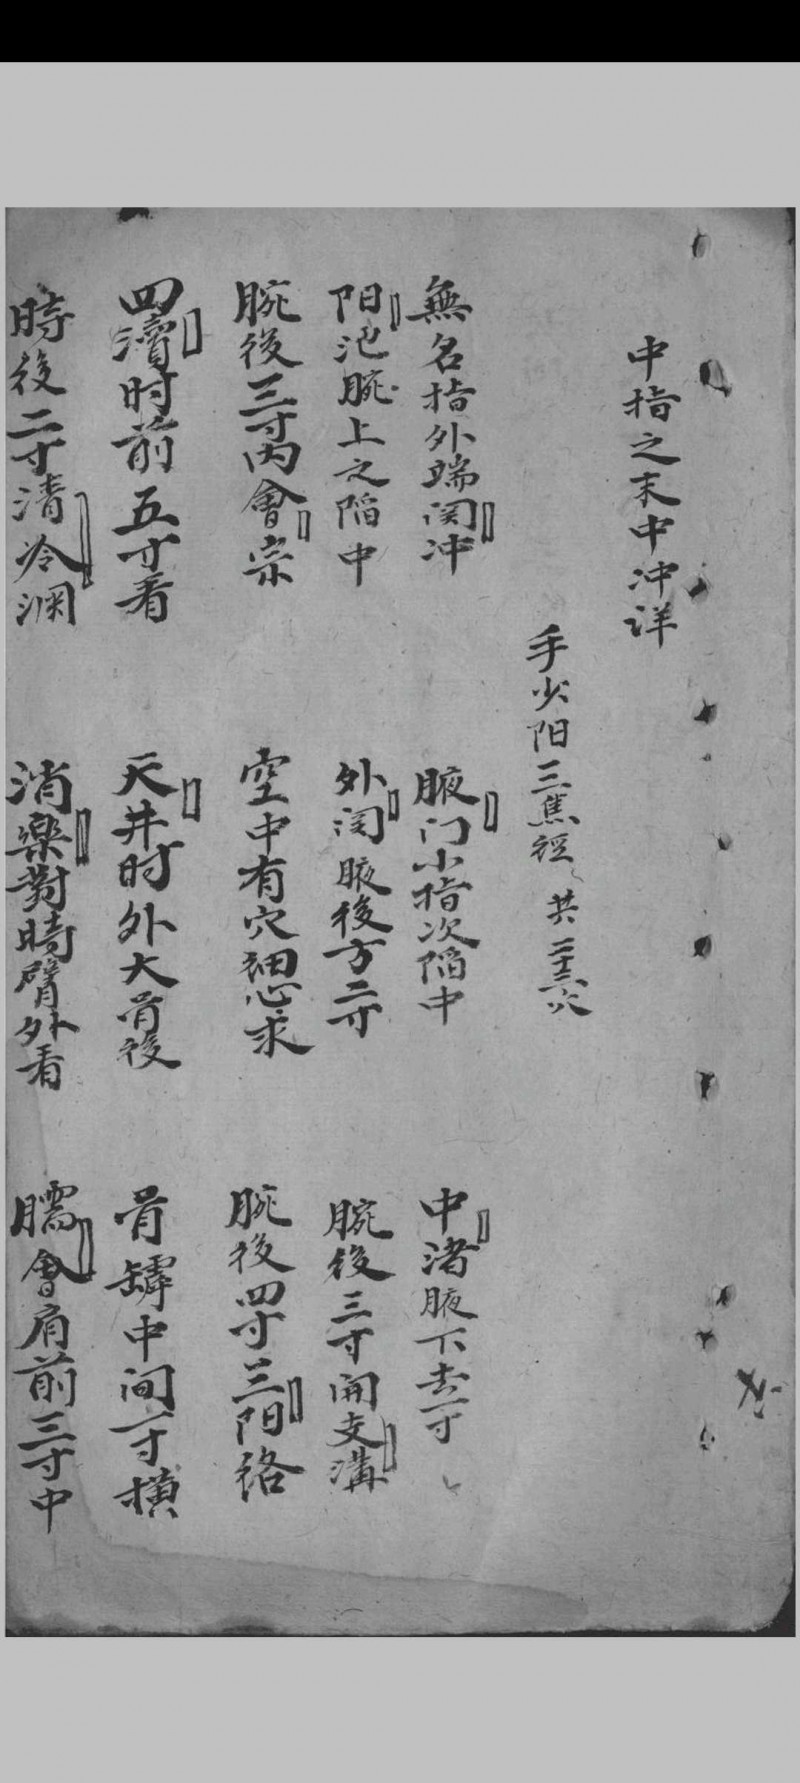 中指之末中冲详
手少阳三焦经 共二十三穴
無名指外端関冲 腋门小指次陷中 中渚腋下去一寸
阳池腕上之陷中 外関腋後方二寸 腕後三寸開支溝
腕後三寸内會宗 空中有穴細心求 腕後四寸三阳络
四瀆肘前五寸看 天井肘外大骨後 骨罅中间一寸横
時後二寸清冷渊 消樂對時臂外看 臑會肩前三寸中